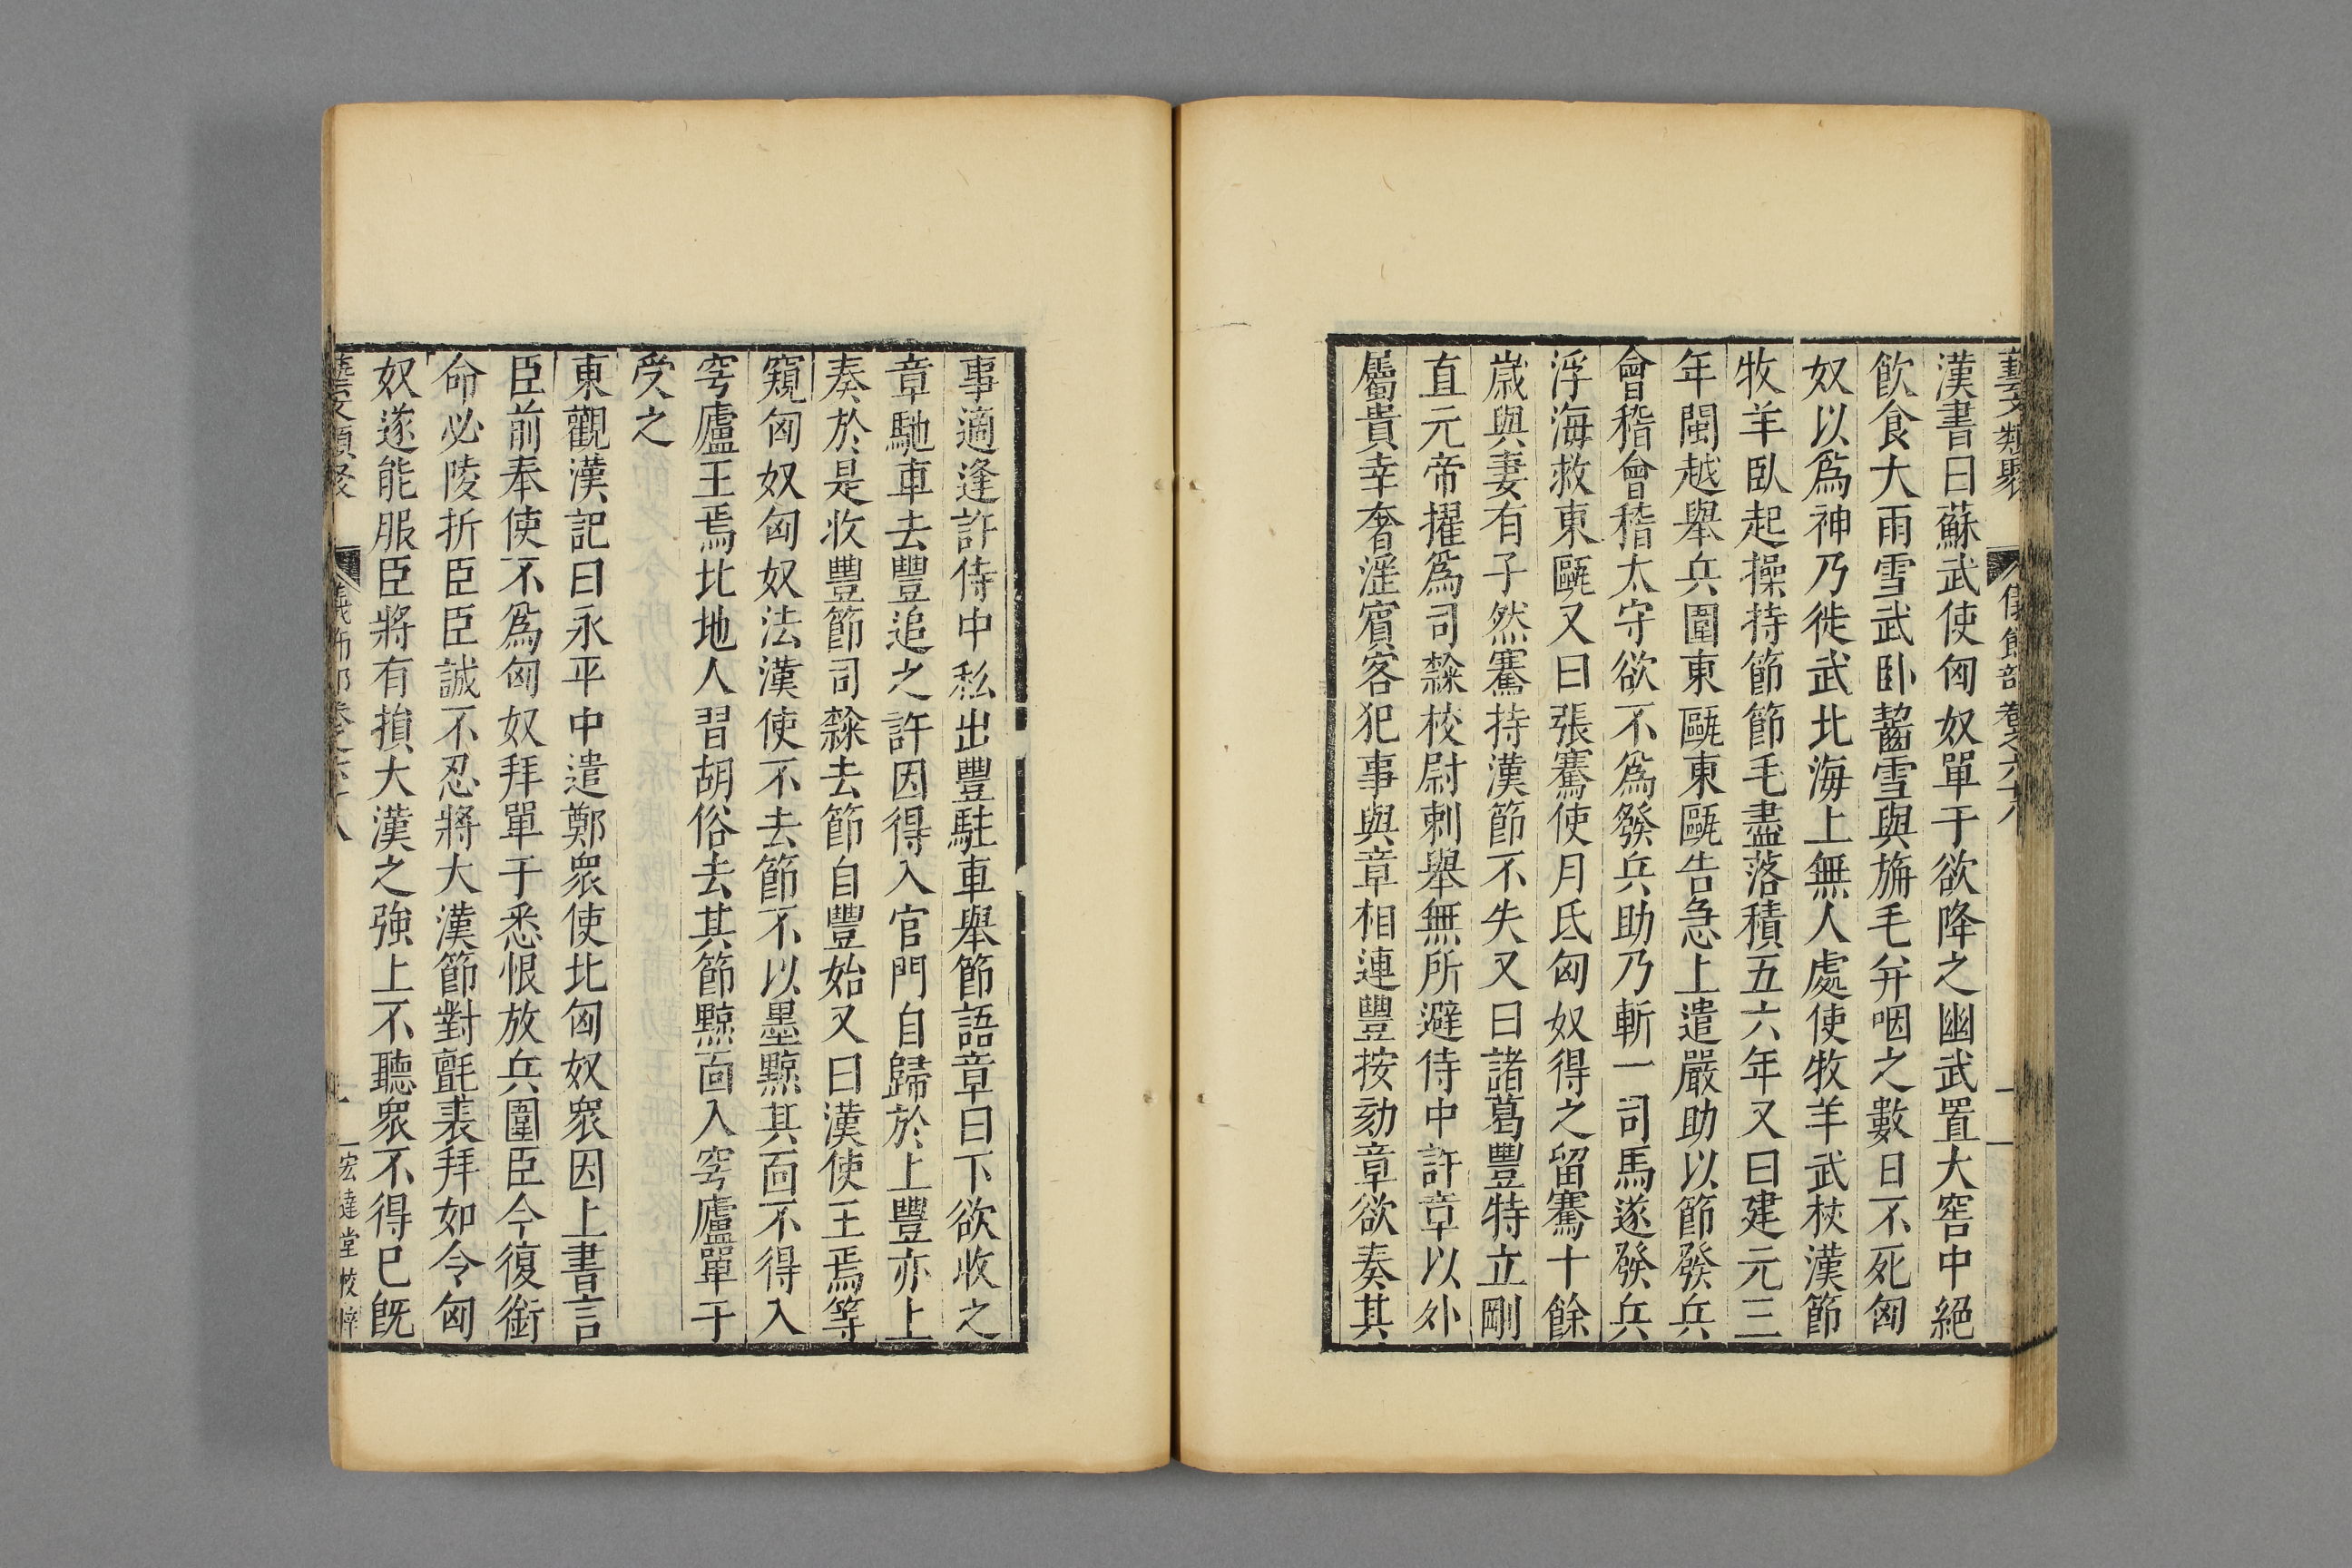 藝文類聚 儀飾部 卷之六十八 一
漢書曰蘇武使匈奴單于欲降之幽武置大窖中絕
飲食大雨雪武卧齧雪與旃毛并咽之數日不死匈
奴以爲神乃徙武北海上無人處使牧羊武杖漢節
牧羊臥起操持節節毛盡落積五六年又曰建元三
年閩越舉兵圍東甌東甌告急上遣嚴助以節發兵
會稽會稽太守欲不爲發兵助乃斬一司馬遂發兵
浮海救東甌又曰張騫使月氏匈奴得之留騫十餘
歲與妻有子然騫持漢節不失又曰諸葛豐特立剛
直元帝擢爲司隸校尉刺舉無所避侍中許章以外
屬貴幸奢淫賓客犯事與章相連豐按劾章欲奏其
事適逢許侍中私出豐駐車舉節語章曰下欲收之
章馳車去豐追之許因得入官門自歸於上豐亦上
奏於是收豐節司隸去節自豐始又曰漢使王焉等
窺匈奴匈奴法漢使不去節不以墨黥其面不得入
穹廬王焉北地人習胡俗去其節黥面入穹廬單于
受之
東觀漢記曰永平中遣鄭衆使北匈奴衆因上書言
臣前奉使不爲匈奴拜單于恚恨放兵圍臣今復銜
命必陵折臣臣誠不忍將大漢節對氈裘拜如令匈
奴遂能服臣將有損大漢之強上不聽衆不得已旣
藝文類聚 儀飾部 卷之六十八 宏達堂校梓